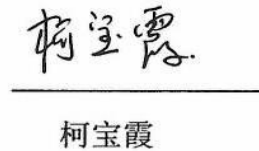 柯宝霞
柯宝霞